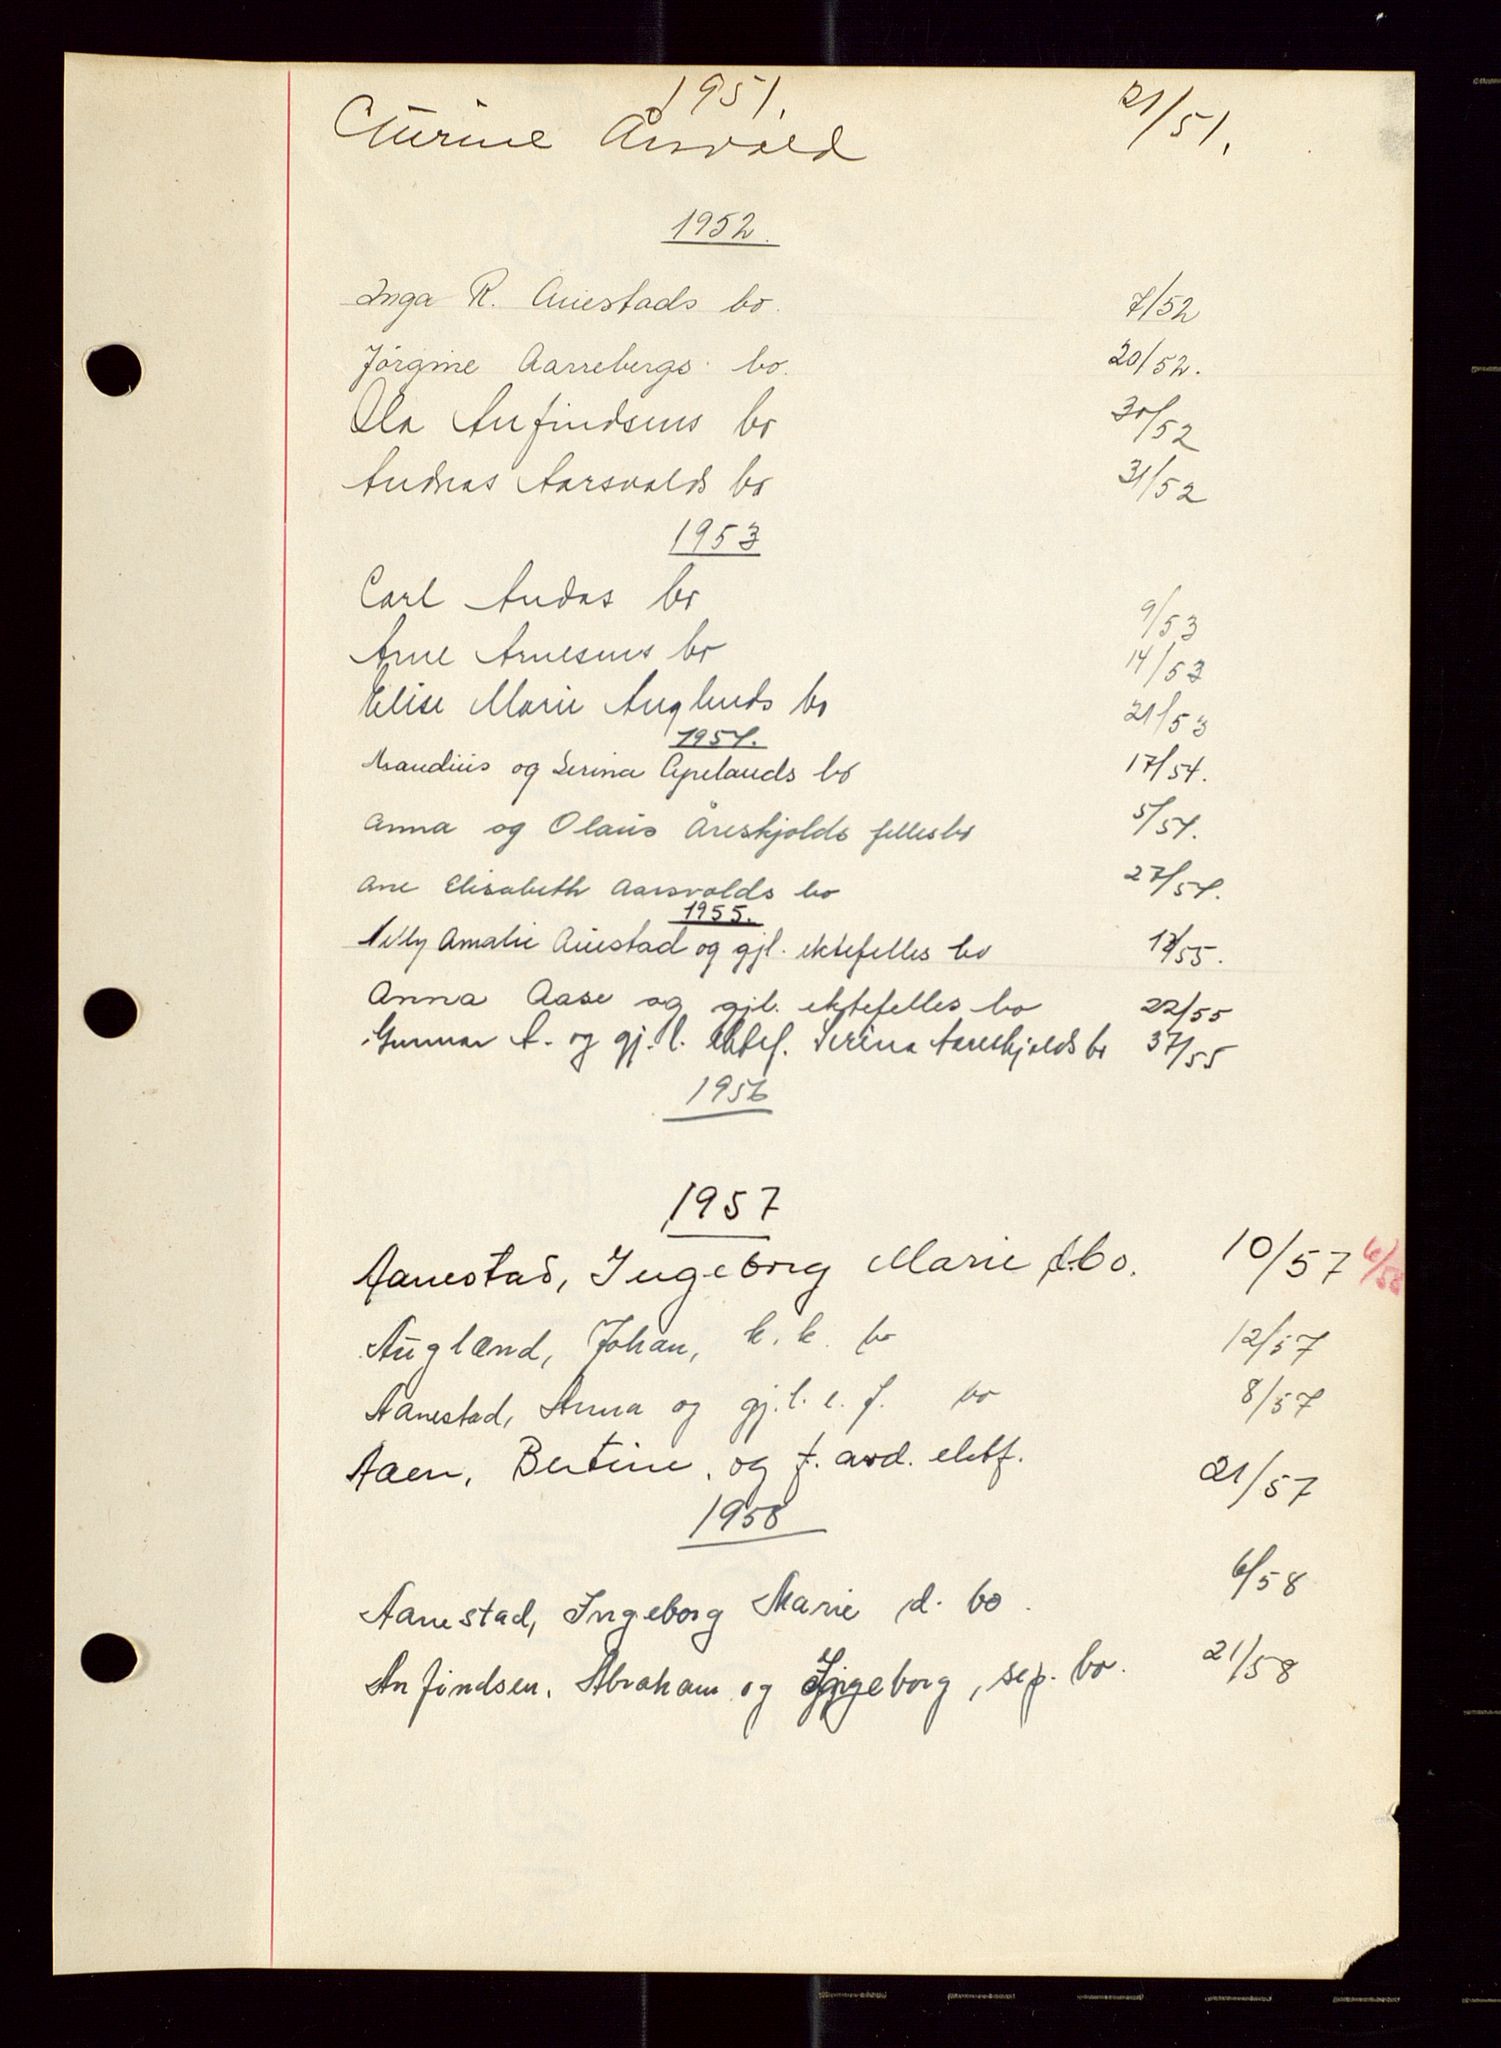 1951.
Årsvold 21/51.
1952.
Inga R. Auestads bo. 7/52
Jørgine Aarrebergs bo. 20/52.
Ola Anfindsens bo 30/52
Andreas Aarsvolds bo 31/52
1953
Carl Andas bo 9/53
Arne Arnesens bo 14/53
Elise Marie Auglends bo 21/53
1954.
og Serina Apelands bo 17/54.
Anna og Olaus Åreskjolds fellesbo 5/54.
Ane Elisabeth Aarsvolds bo 27/54.
1955.
Nelly Amalie Auestad og gjl. ektefelles bo /55.
Anna Aase og gjl. ektefelles bo 22/55
Gunnar A. og gj.l. ektef. Serina Aareskjolds bo 37/55
1956
1957
Aanestad, Ingeborg Marie d.bo. 10/57 6/58
Auglænd, Johan, k. k. bo 12/57
Aanestad, Anna og gj.l.e.f. bo 8/57
Aaen, Bertine, og f. avd. ektf. 21/57
1958
Aanestad, Ingeborg Marie d. bo. 6/58
Anfindsen, Abraham og Ingeborg, sep. bo. 21/58